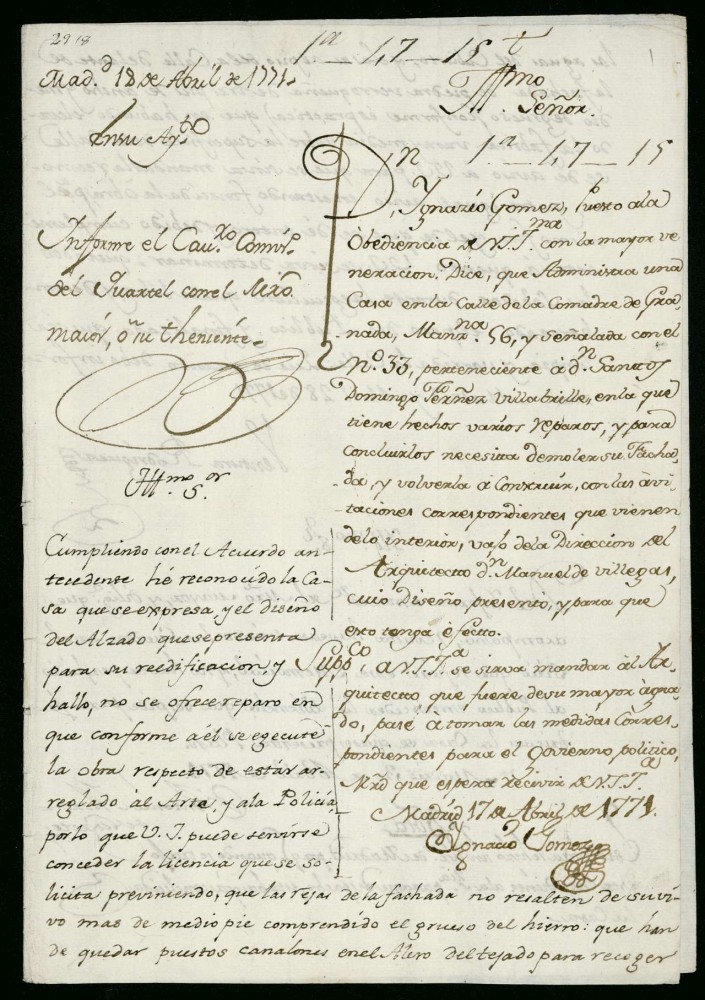 29 18
1ª - 47 - 15 t
1
Mad.d 18 de Abril de 1771.
En su Ay.to
Informe el Cav.ro Comis.o
del Quartel con el Mrõ
maiór, ô su theniente.
Ill.mo S.or
Cumpliendo con el Acuerdo an-
tecedente hé reconocido la Ca-
sa que se expresa, y el diseño
del Alzado que se presenta
para su reedificacion, y
hallo, no se ofrece reparo en
que conforme a él se egecute
la obra respecto de estár ar-
reglado àl Arte, y ala Policía,
porlo que V. I. puede servirse
conceder la licencia que se so-
licita previniendo, que las rejas de la fachada no resalten de su vi-
vo mas de medio pie comprendido el grueso del hierro: que han
de quedar puestos canalones en el Alero del tejado para recoger
Ill.mo
Señor.
1.ª - 47 - 15
D.n Ygnazio Gomez, puesto ala
Obediencia de V.S.I.ma con la mayor ve
neracion. Dice, que Administra una
Casa en la Calle dela Comadre de Gra-
nada, Manz.na 56, y señalada con el
N.o 33, perteneciente à d.n Santos
Domingo Ferñez villabrille, en la que
tiene hechos varios reparos, y para
concluirlos necesita demoler su Facha-
da, y volverla à Construir, con las àvi-
taciones correspondientes que vienen
delo interior, vajo dela Direccion del
Arquitecto d.n Manuel de villegas,
cuio Diseño, presento, y para que
esto tenga efecto.
Supp.co a V.S.I.a se sirva mandar àl Ar-
quitecto que fuere de su mayor àgra-
do, pase à tomar las medidas Corres-
pondientes para el Govierno politico,
Mrd que espera recivir de V.S.I.a
Madrid 17 de Abril de 1771.
Ygnacio Gomez